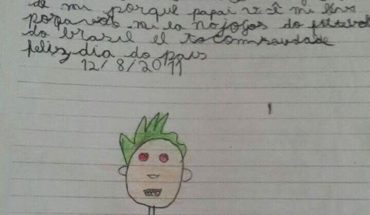 de mi porque papai você mi leva
para ver mi la no jogos do futebol
do brazil el to com saudade
feliz dia do pais
12/8/2011